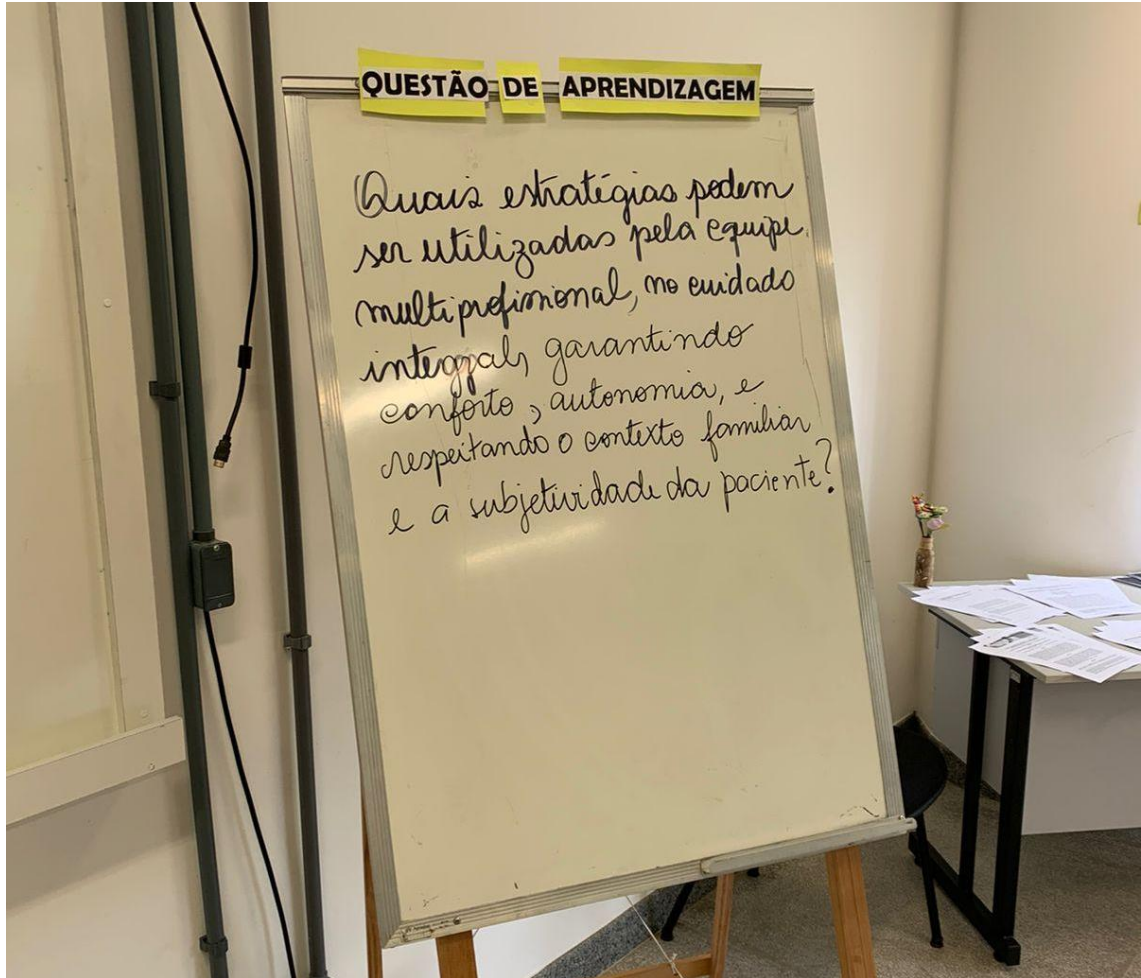 QUESTÃO DE APRENDIZAGEM
Quais estratégias podem
ser utilizadas pela equipe
multiprofissional, no cuidado
integral, garantindo
conforto, autonomia, e
respeitando o contexto familiar
e a subjetividade da paciente?